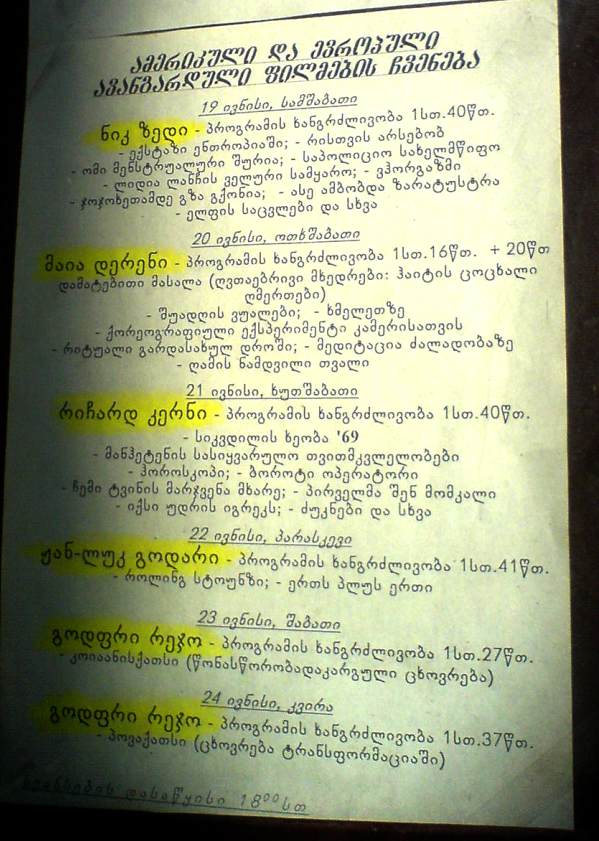 ამერიკული და ევროპული
ავანგარდული ფილმების ჩვენება
19 ივნისი, სამშაბათი
ნიკ ზედი - პროგრამის ხანგრძლივობა 1სთ.40წთ.
- ექსტაზი ენთროპიაში; - რისთვის არსებობ
- ომი მენსტრუალური შურია; - საპოლიციო სახელმწიფო
- ლიდია ლანჩის ველური სამყარო; - ვჰორგაზმი
- ჯოჯოხეთამდე გზა გქონია; - ასე ამბობდა ზარატუსტრა
- ელფის საცვლები და სხვა
20 ივნისი, ოთხშაბათი
მაია დერენი - პროგრამის ხანგრძლივობა 1სთ.16წთ. + 20წთ
დამატებითი მასალა (ღვთაებრივი მხედრები: ჰაიტის ცოცხალი
ღმერთები)
- შუადღის ვუალები; - ხმელეთზე
- ქორეოგრაფიული ექსპერიმენტი კამერისათვის
- რიტუალი გარდასახულ დროში; - მედიტაცია ძალადობაზე
- ღამის ნამდვილი თვალი
21 ივნისი, ხუთშაბათი
რიჩარდ კერნი - პროგრამის ხანგრძლივობა 1სთ.40წთ.
- სიკვდილის ხეობა '69
- მანჰეტენის სასიყვარულო თვითმკვლელობები
- ჰოროსკოპი; - ბოროტი ოპერატორი
- ჩემი ტვინის მარჯვენა მხარე; - პირველმა შენ მომკალი
- იქსი უდრის იგრეკს; - ძუკნები და სხვა
22 ივნისი, პარასკევი
ჟან-ლუკ გოდარი - პროგრამის ხანგრძლივობა 1სთ.41წთ.
- როლინგ სტოუნზი; - ერთს პლუს ერთი
23 ივნისი, შაბათი
გოდფრი რეჯო - პროგრამის ხანგრძლივობა 1სთ.27წთ.
- კოიაანისქათსი (წონასწორობადაკარგული ცხოვრება)
24 ივნისი, კვირა
გოდფრი რეჯო - პროგრამის ხანგრძლივობა 1სთ.37წთ.
- პოვაქათსი (ცხოვრება ტრანსფორმაციაში)
სეანსების დასაწყისი 18⁰⁰სთ